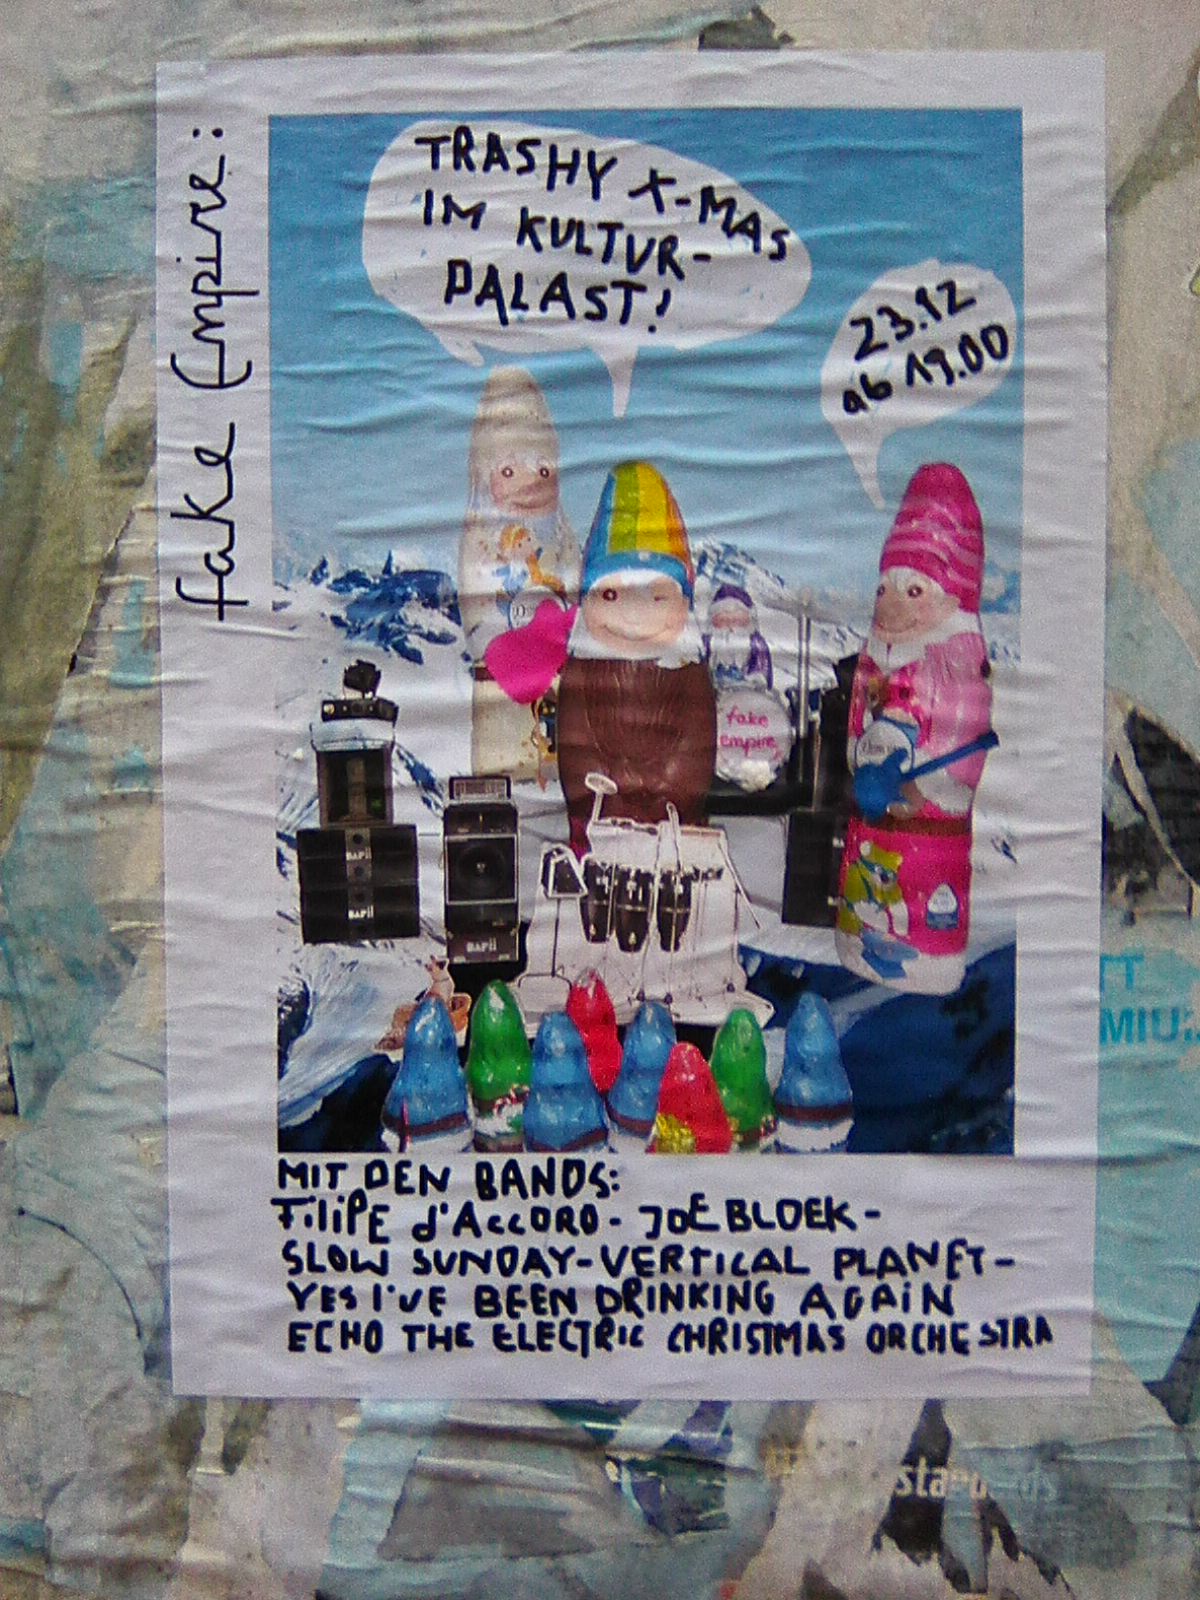 fake Empire:
TRASHY X-MAS
IM KULTUR-
PALAST!
23.12
ab 19.00
fake
empire
MIT DEN BANDS:
FiliPE d'AccORD - JOE BLOEK -
SLOW SUNDAY - VERTICAL PLANET -
YES I'VE BEEN DRINKING AGAiN
ECHO THE ELECTRIC CHRISTMAS ORCHESTRA
TT
MIU